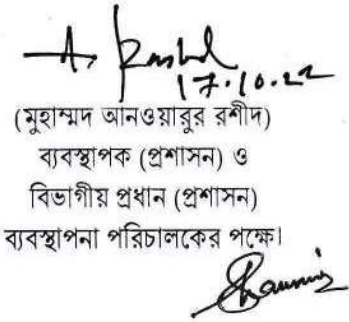 A Rashid
17.10.22
(মুহাম্মদ আনওয়ারুর রশীদ)
ব্যবস্থাপক (প্রশাসন) ও
বিভাগীয় প্রধান (প্রশাসন)
ব্যবস্থাপনা পরিচালকের পক্ষে।